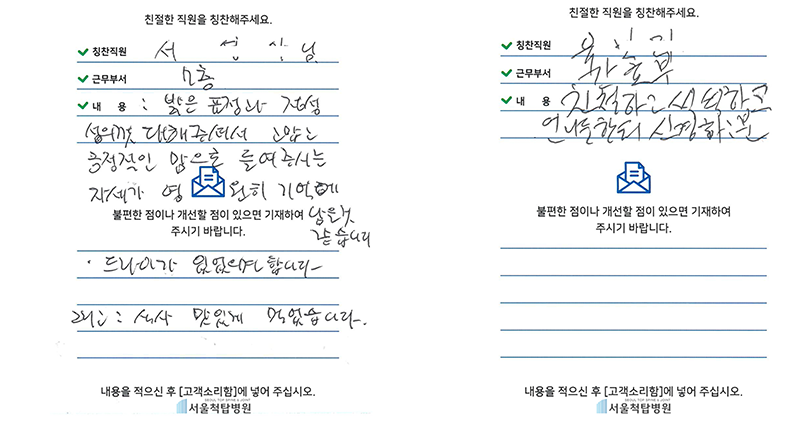 친절한 직원을 칭찬해주세요.
칭찬직원 서 님
근무부서 7층
내 용 : 밝은 표정과 정성
성의껏 대해주셔서 고맙고
긍정적인 맘으로 들어주시는
자세가 영원히 기억에
남을것
같습니다
불편한 점이나 개선할 점이 있으면 기재하여
주시기 바랍니다.
· 드라이가 있었으면 합니다
식사 맛있게 먹었습니다.
내용을 적으신 후 [고객소리함]에 넣어 주십시오.
SEOUL TOP SPINE & JOINT
서울척탑병원
친절한 직원을 칭찬해주세요.
칭찬직원
근무부서
내 용 친절하고
불편한 점이나 개선할 점이 있으면 기재하여
주시기 바랍니다.
내용을 적으신 후 [고객소리함]에 넣어 주십시오.
SEOUL TOP SPINE & JOINT
서울척탑병원